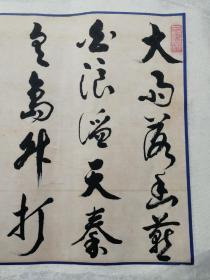 大雨落幽燕
白浪滔天秦
皇島外打